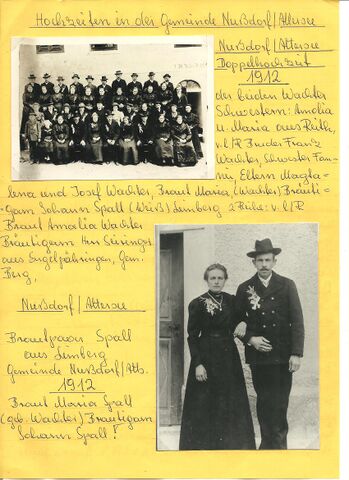 Hochzeiten in der Gemeinde Nußdorf/Attersee
Nußdorf/Attersee
Doppelhochzeit
1912
der beiden Wachter
Schwestern: Amalia
u. Maria aus Reith,
v.l/R Bruder Franz
Wachter, Schwester Fan-
ni, Eltern Magda-
lena und Josef Wachter, Braut Maria, (Wachter) Bräuti-
gam Johann Spalt (Weiß) Limberg 2 Reihe: v.l/R
Braut Amalia Wachter
Bräutigam
aus Engljähringen, Gem.
Berg,
Nußdorf/Attersee
Brautpaar Spalt
aus Limberg
Gemeinde Nußdorf/Atts.
1912
Braut Maria Spalt
(geb. Wachter) Bräutigam
Johann Spalt!